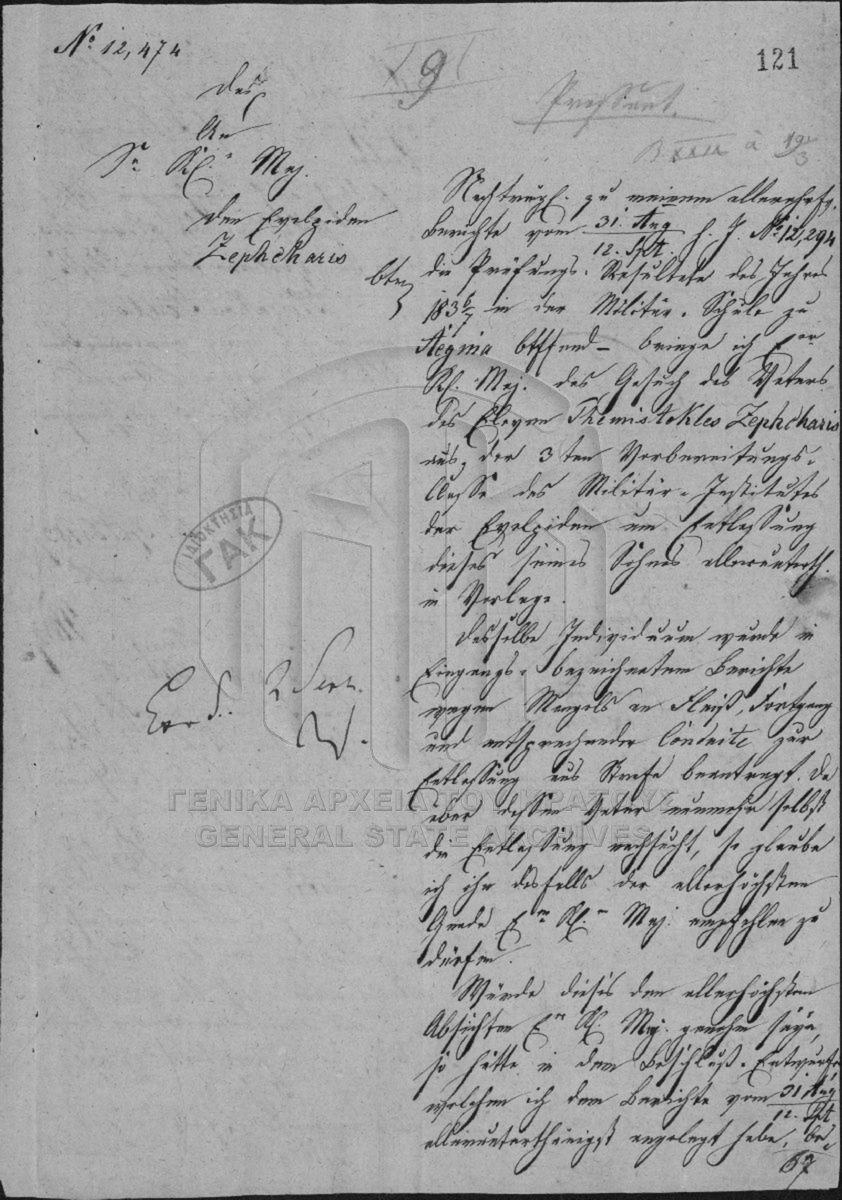 No 12,474
121
9
Pressant.
Das
An
Sr Kl. Maj.
den Evelpiden
Zephcharis
btrf
Nachträgl. zu meinem allerehrf.
Berichte vom 31. Aug / 12. Spt. h. J. No 12,294
die Prüfungs-Resultate des Jahres
1836/7 in der Militär-Schule zu
Aegina btffend – bringe ich Eur
Kl. Maj. das Gesuch des Vaters
des Eleven Themistokles Zephcharis
aus der 3ten Vorbereitungs-
Classe des Militär-Institutes
der Evelpiden um Entlassung
dieses seines Sohnes allerunterth.
in Vorlage.
Dasselbe Individuum wurde in
Eingangs-bezeichnetem Berichte
wegen Mangels an Fleiß, Fortgang
und entsprechender Conduite zur
Entlassung aus Strafe beantragt. Da
aber dessen Vater nunmehr selbst
die Entlassung nachsucht, so glaube
ich ihn desfalls der allerhöchsten
Gnade Er Kl.n Maj. empfehlen zu
dürfen.
Würde dieses den allerhöchsten
Absichten Er Kl. Maj. genehm seyn,
so hätte in dem Beschluß-Entwurfe,
welchen ich dem Berichte vom 31 Aug / 12. Spt
allerunterthänigst angelegt habe, be-
67
ΙΔΙΟΚΤΗΣΙΑ
ΓΑΚ
ΓΕΝΙΚΑ ΑΡΧΕΙΑ ΤΟΥ ΚΡΑΤΟΥΣ
GENERAL STATE ARCHIVES